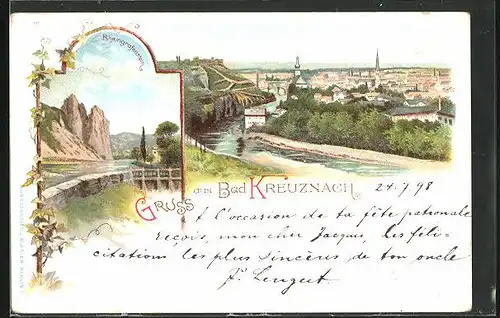 Rheingrafenstein
Gruss aus Bad Kreuznach
24.7 98
A l'occasion de ta fête patronale
reçois, mon cher Jacques, les féli-
citations les plus sincères de ton oncle